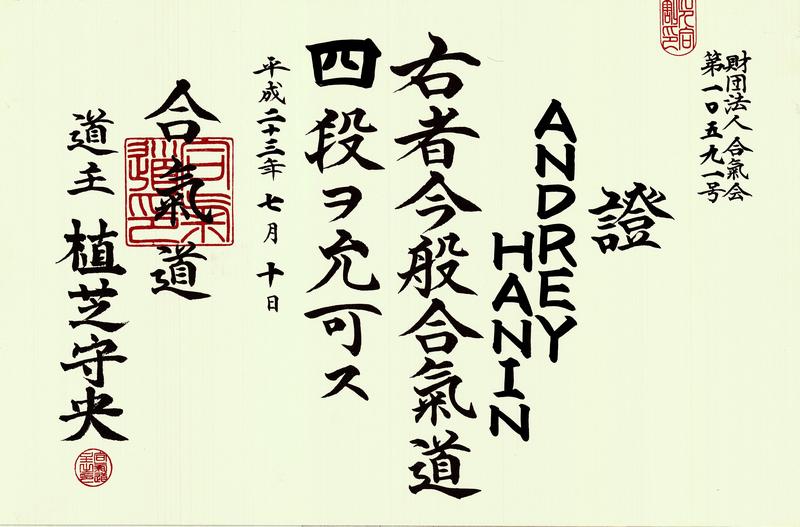 財団法人 合氣会
第一〇五九一号
證
ANDREY
HANIN
右者今般合氣道
四段ヲ允可ス
平成二十三年 七月 十日
合氣道
道主 植芝守央